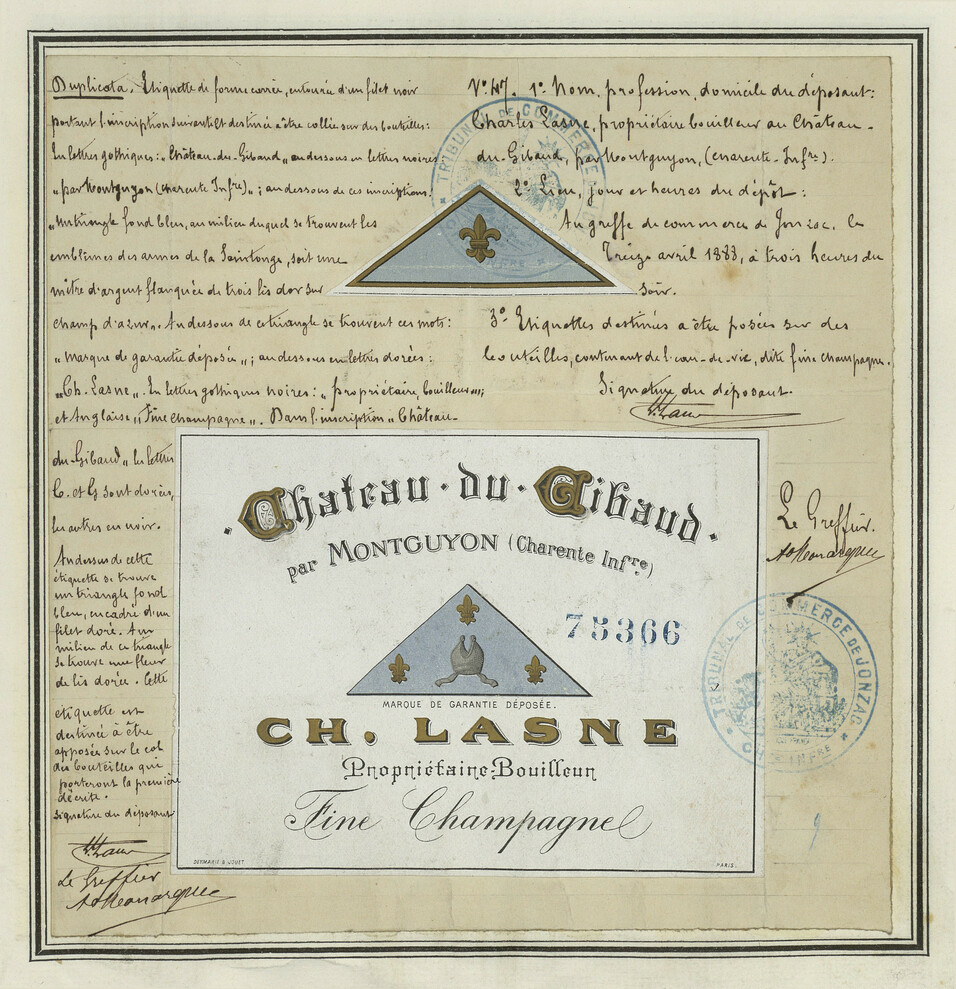 Duplicata. Etiquette de forme carrée, entourée d'un filet noir
portant l'inscription suivante et destinée à être collée sur des bouteilles:
En lettres gothiques: "Château-du-Gibaud" au dessous en lettres noires
"par Montguyon (Charente Infre)"; au dessous de ces inscriptions,
"un triangle fond bleu, au milieu duquel se trouvent les
emblèmes des armes de la Saintonge, soit une
mître d'argent flanquée de trois lis d'or sur
champ d'azur". Au dessous de ce triangle se trouvent ces mots:
"marque de garantie déposée"; au dessous en lettres dorées:
"Ch. Lasne". En lettres gothiques noires: "propriétaire, bouilleur";
et Anglaise "Fine Champagne". Dans l'inscription "Château-
du Gibaud" les lettres
C. et G sont dorées,
les autres en noir.
Au dessus de cette
étiquette se trouve
un triangle fond
bleu, encadré d'un
filet doré. Au
milieu de ce triangle
se trouve une fleur
de lis dorée. Cette
etiquette est
destinée à être
apposée sur le col
des bouteilles qui
porteront la première
décrite.
Signature du déposant
Le Greffier
No. 47. 1o. Nom, profession, domicile du déposant:
Charles Lasne, propriétaire bouilleur au Château-
du-Gibaud, par Montguyon, (Charente-Infre).
2o. Lieu, jour et heures du dépôt:
Au greffe de commerce de Jonzac, le
Treize avril 1883, à trois heures du
soir.
3o. Etiquettes destinées à être posées sur des
bouteilles, contenant de l'eau-de-vie, dite fine champagne.
Signature du déposant.
Le Greffier.
Chateau · du · Gibaud
par MONTGUYON (Charente Infre)
75366
MARQUE DE GARANTIE DÉPOSÉE.
CH. LASNE
Propriétaire-Bouilleur
Fine Champagne
PARIS.
TRIBUNAL DE COMMERCE DE JONZAC
9